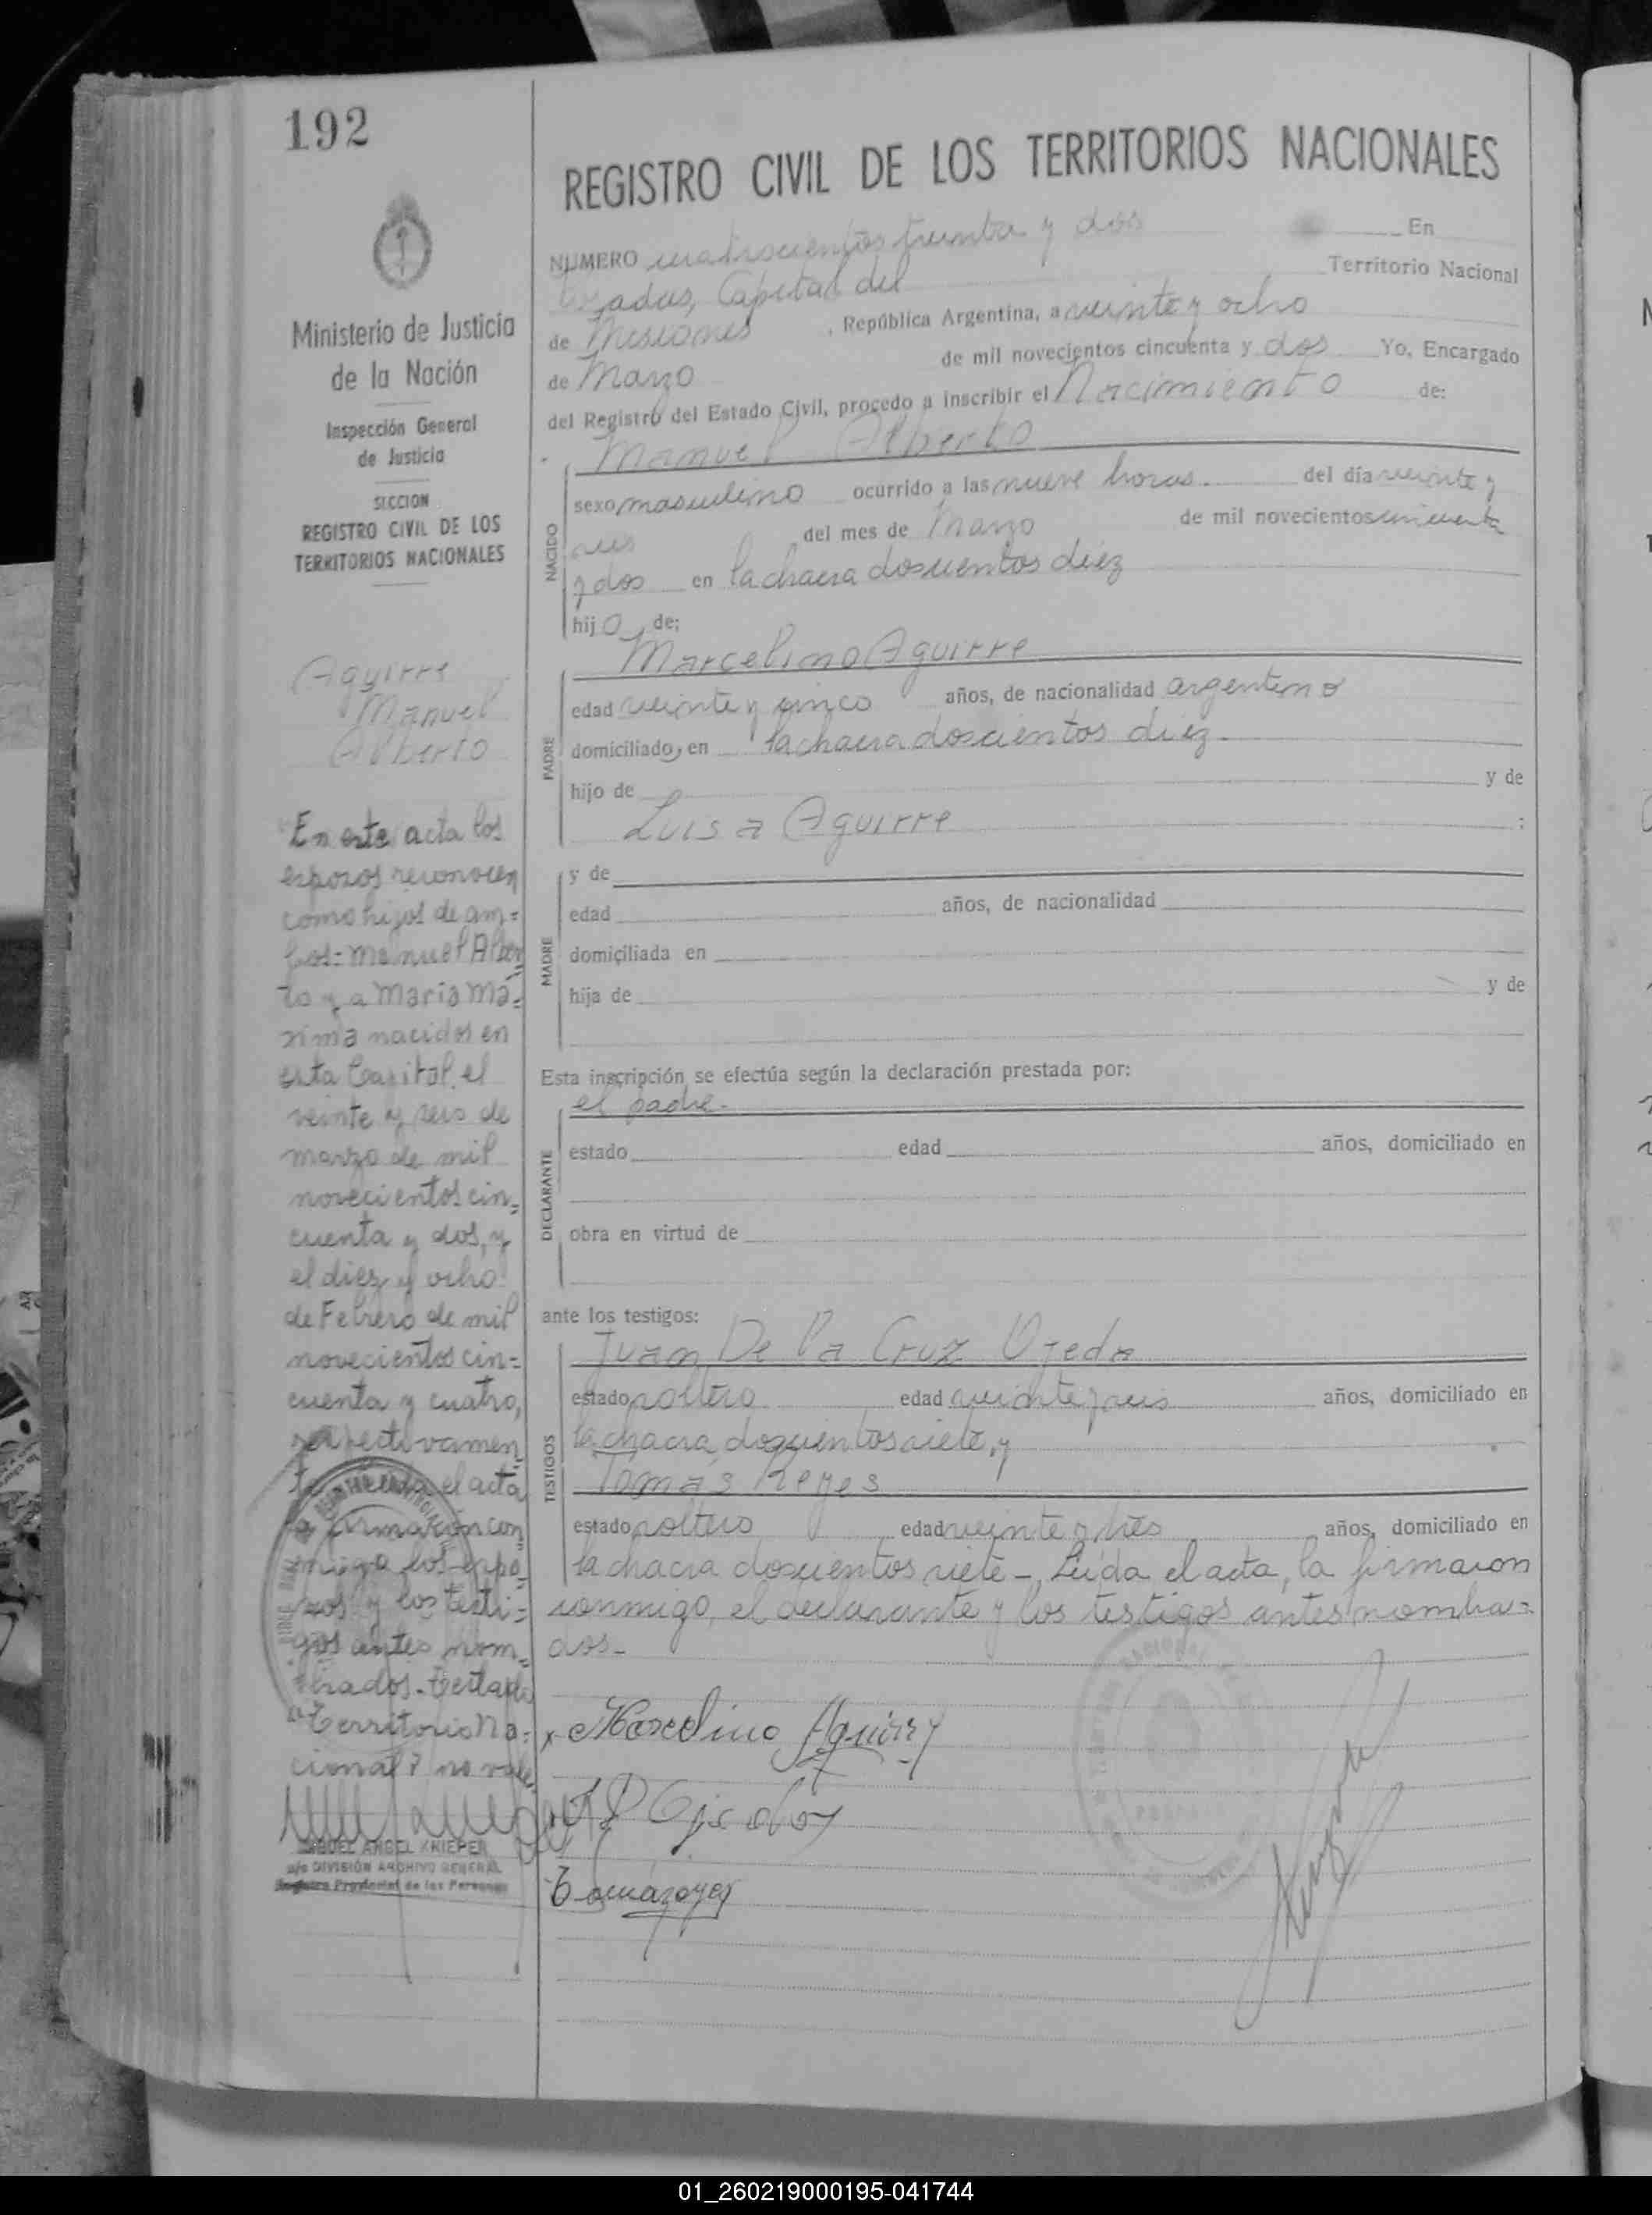 192
Ministerio de Justicia
de la Nación
Inspección General
de Justicia
SECCION
REGISTRO CIVIL DE LOS
TERRITORIOS NACIONALES
Aguirre
Manuel
Alberto
En este acta los
esposos reconocen
como hijos de am=
bos: Manuel Alber
to y a Maria Má=
xima nacidos en
esta Capital, el
veinte y seis de
marzo de mil
novecientos cin=
cuenta y dos, y
el diez y ocho
de Febrero de mil
novecientos cin=
cuenta y cuatro,
respectivamen
el acta
la firmaron con
migo los espo
sos y los testi=
gos antes nom=
brados. Testado
"Territorio Na=
cional" no vale
MIGUEL ANGEL KNIEPER
a/c DIVISIÓN ARCHIVO GENERAL
Registro Provincial de las Personas
REGISTRO CIVIL DE LOS TERRITORIOS NACIONALES
NUMERO cuatrocientos treinta y dos En
Posadas, Capital del Territorio Nacional
de Misiones, República Argentina, a veinte y ocho
de Marzo de mil novecientos cincuenta y dos Yo, Encargado
del Registro del Estado Civil, procedo a inscribir el Nacimiento de:
Manuel Alberto
NACIDO
sexo masculino ocurrido a las nueve horas. del día veinte y
seis del mes de Marzo de mil novecientos cincuenta
y dos en la chacra doscientos diez
hijo de;
Marcelino Aguirre
PADRE
edad veinte y cinco años, de nacionalidad argentino
domiciliado, en la chacra doscientos diez.
hijo de y de
Luisa Aguirre ;
MADRE
y de
edad años, de nacionalidad
domiciliada en
hija de y de
Esta inscripción se efectúa según la declaración prestada por:
el padre.
DECLARANTE
estado edad años, domiciliado en
obra en virtud de
ante los testigos:
Juan De la Cruz Ojeda
TESTIGOS
estado soltero edad veinte y seis años, domiciliado en
la chacra doscientos siete, y
Tomás Reyes
estado soltero edad veinte y tres años, domiciliado en
la chacra doscientos siete -, Leída el acta, la firmaron
conmigo, el declarante y los testigos antes nombra=
dos.-
x Marcelino Aguirre
01_260219000195-041744